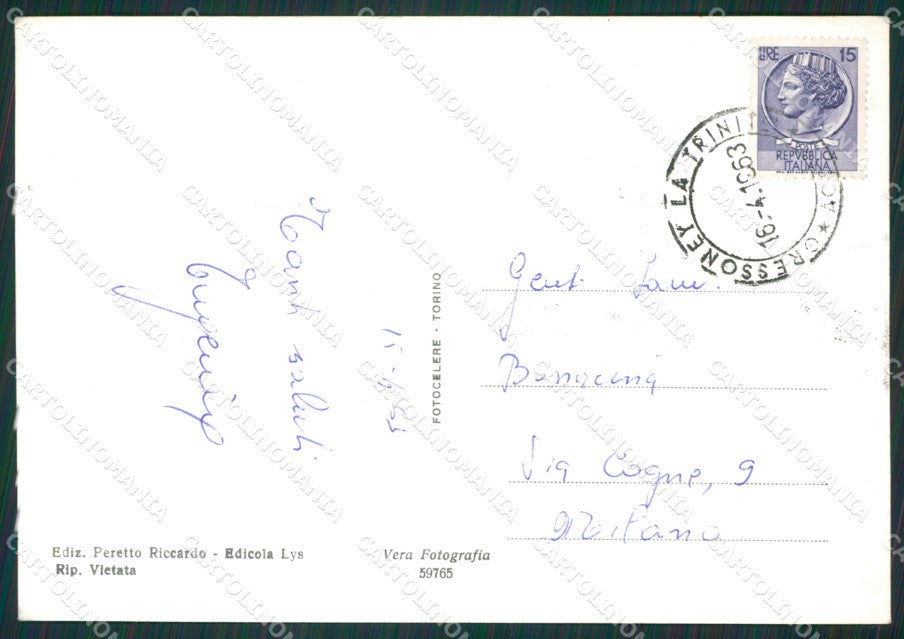 LIRE 15
POSTE
REPVBBLICA
ITALIANA
GRESSONEY LA TRINITE
AOSTA
Tanti saluti
Eugenia
FOTOCELERE - TORINO
Gent. Fam.
Bonacina
Via Cogne, 9
Milano
Ediz. Peretto Riccardo - Edicola Lys
Rip. Vietata
Vera Fotografia
59765
CARTOLINOMANIA